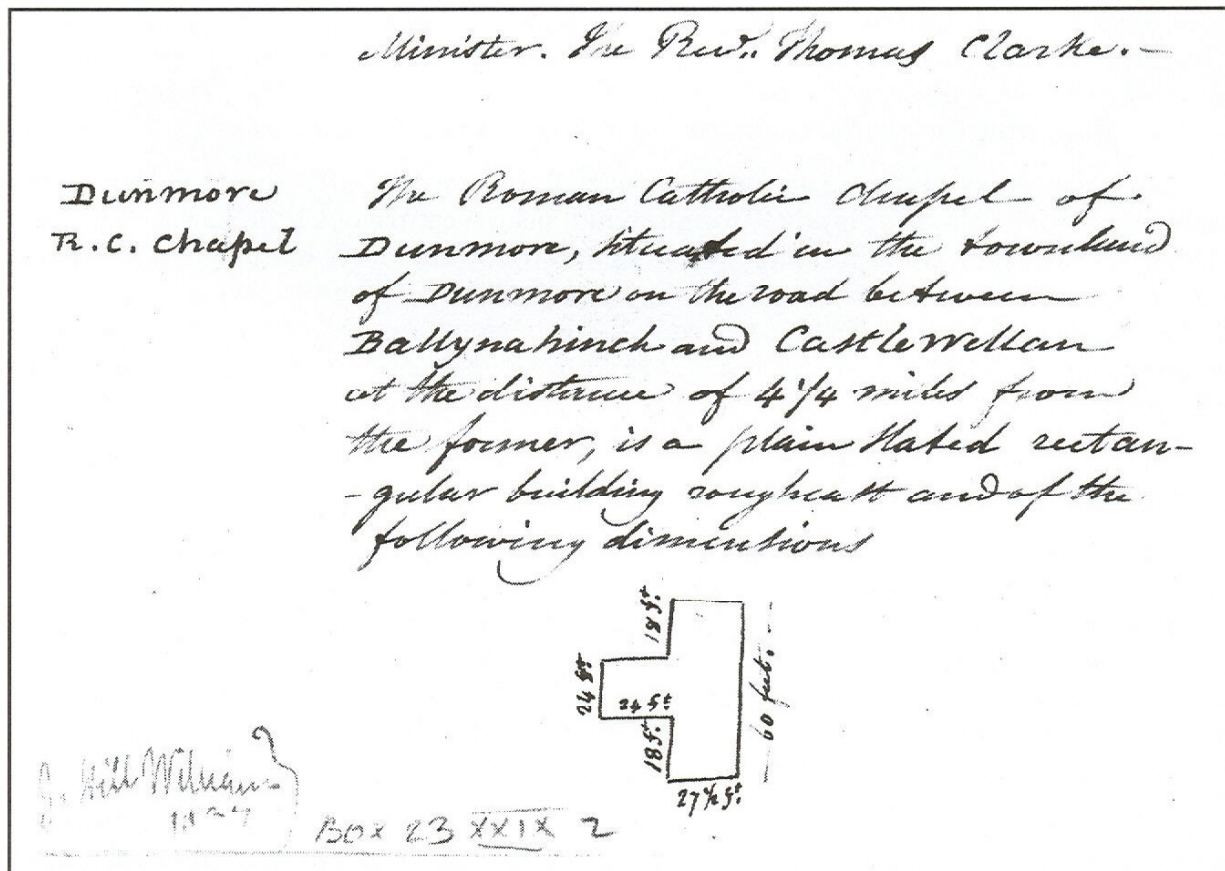 Minister. The Revd. Thomas Clarke. —
Dunmore
R.C. Chapel
The Roman Catholic Chapel of
Dunmore, situated in the townland
of Dunmore on the road between
Ballynahinch and Castlewellan
at the distance of 4 1/4 miles from
the former, is a plain slated rectan-
-gular building roughcast and of the
following dimensions
18 ft.
24 ft
24 ft
18 ft.
60 feet. —
27 1/2 ft.
J. Hill Williams
BOX 23 XXIX 2